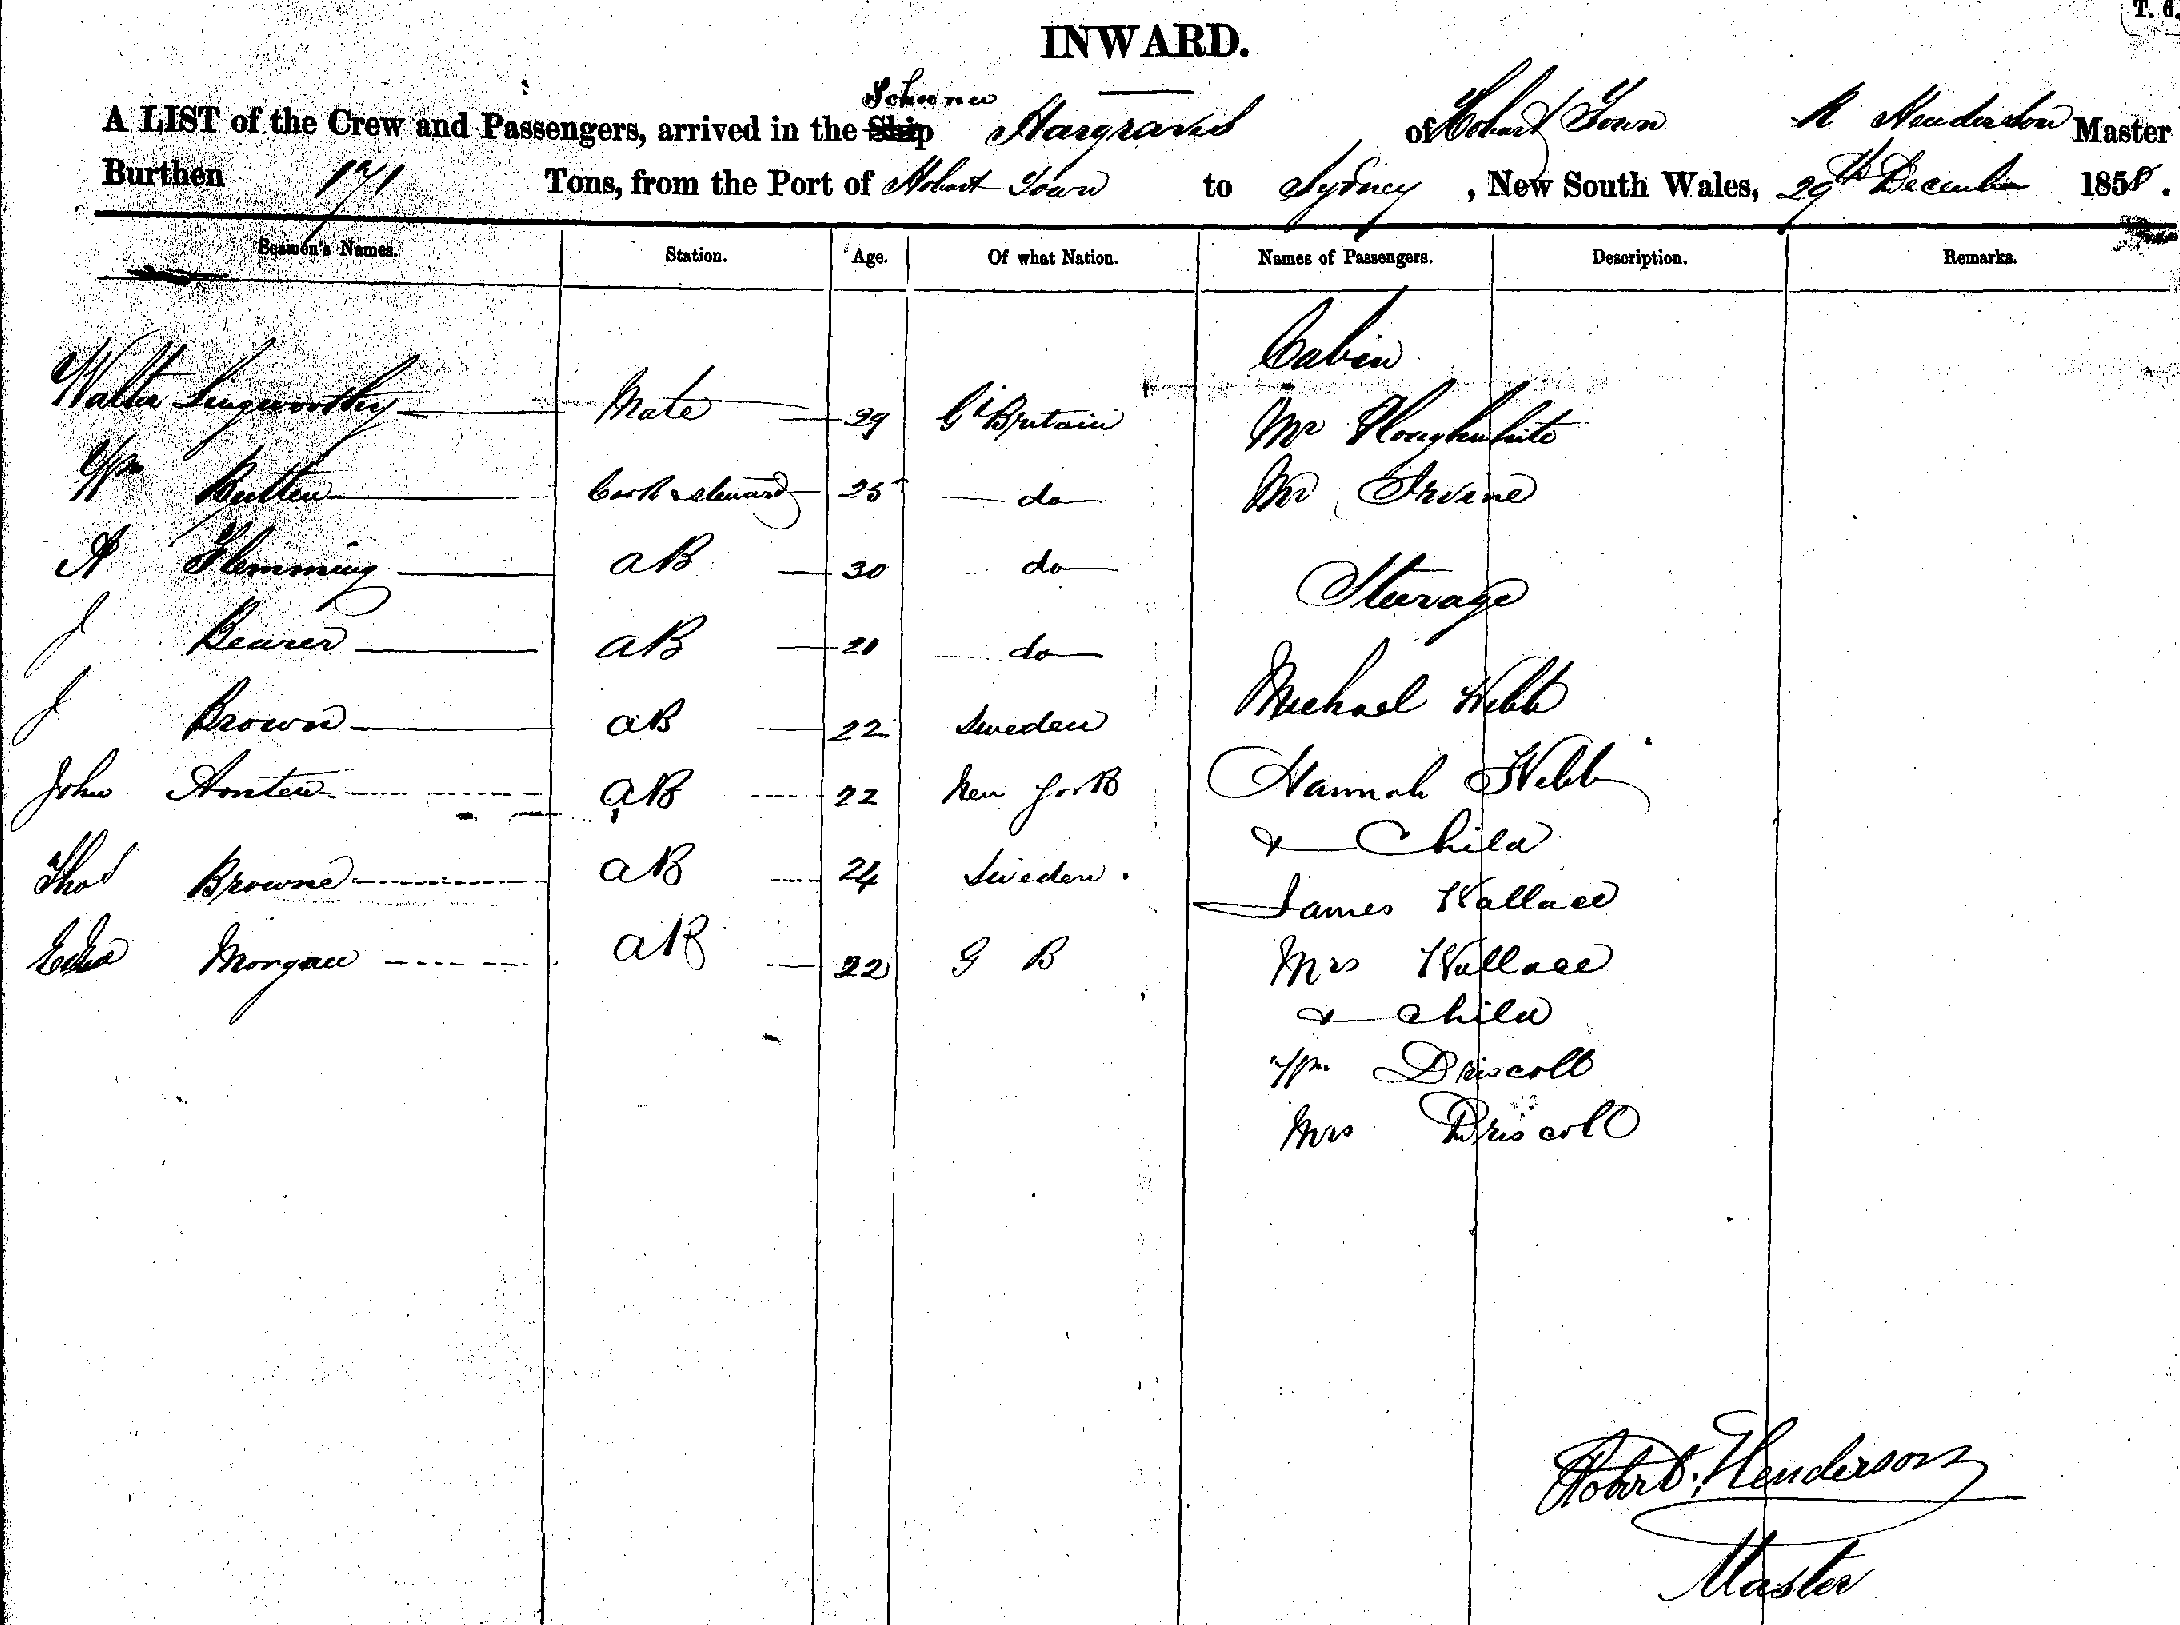 T. d.
INWARD.
Schooner
A LIST of the Crew and Passengers, arrived in the Ship Hargraves of Hobart Town R Henderson Master
Burthen 171 Tons, from the Port of Hobart Town to Sydney, New South Wales, 29th December 1858.
Seamen's Names. Station. Age. Of what Nation. Names of Passengers. Description. Remarks.
Cabin
Walter Lingworthy Mate 29 Gt Britain Mr
Wm Cook & steward 25 do Mr Irvine
A Flemming AB 30 do
Steerage
J AB 21 do
J Brown AB 22 Sweden Michael Webb
John AB 22 New York Hannah Webb
& Child
Thos Browne AB 24 Sweden.
James Wallace
Morgan AB 22 G B Mrs Wallace
& Child
Wm Driscoll
Mrs Driscoll
Robert Henderson
Master